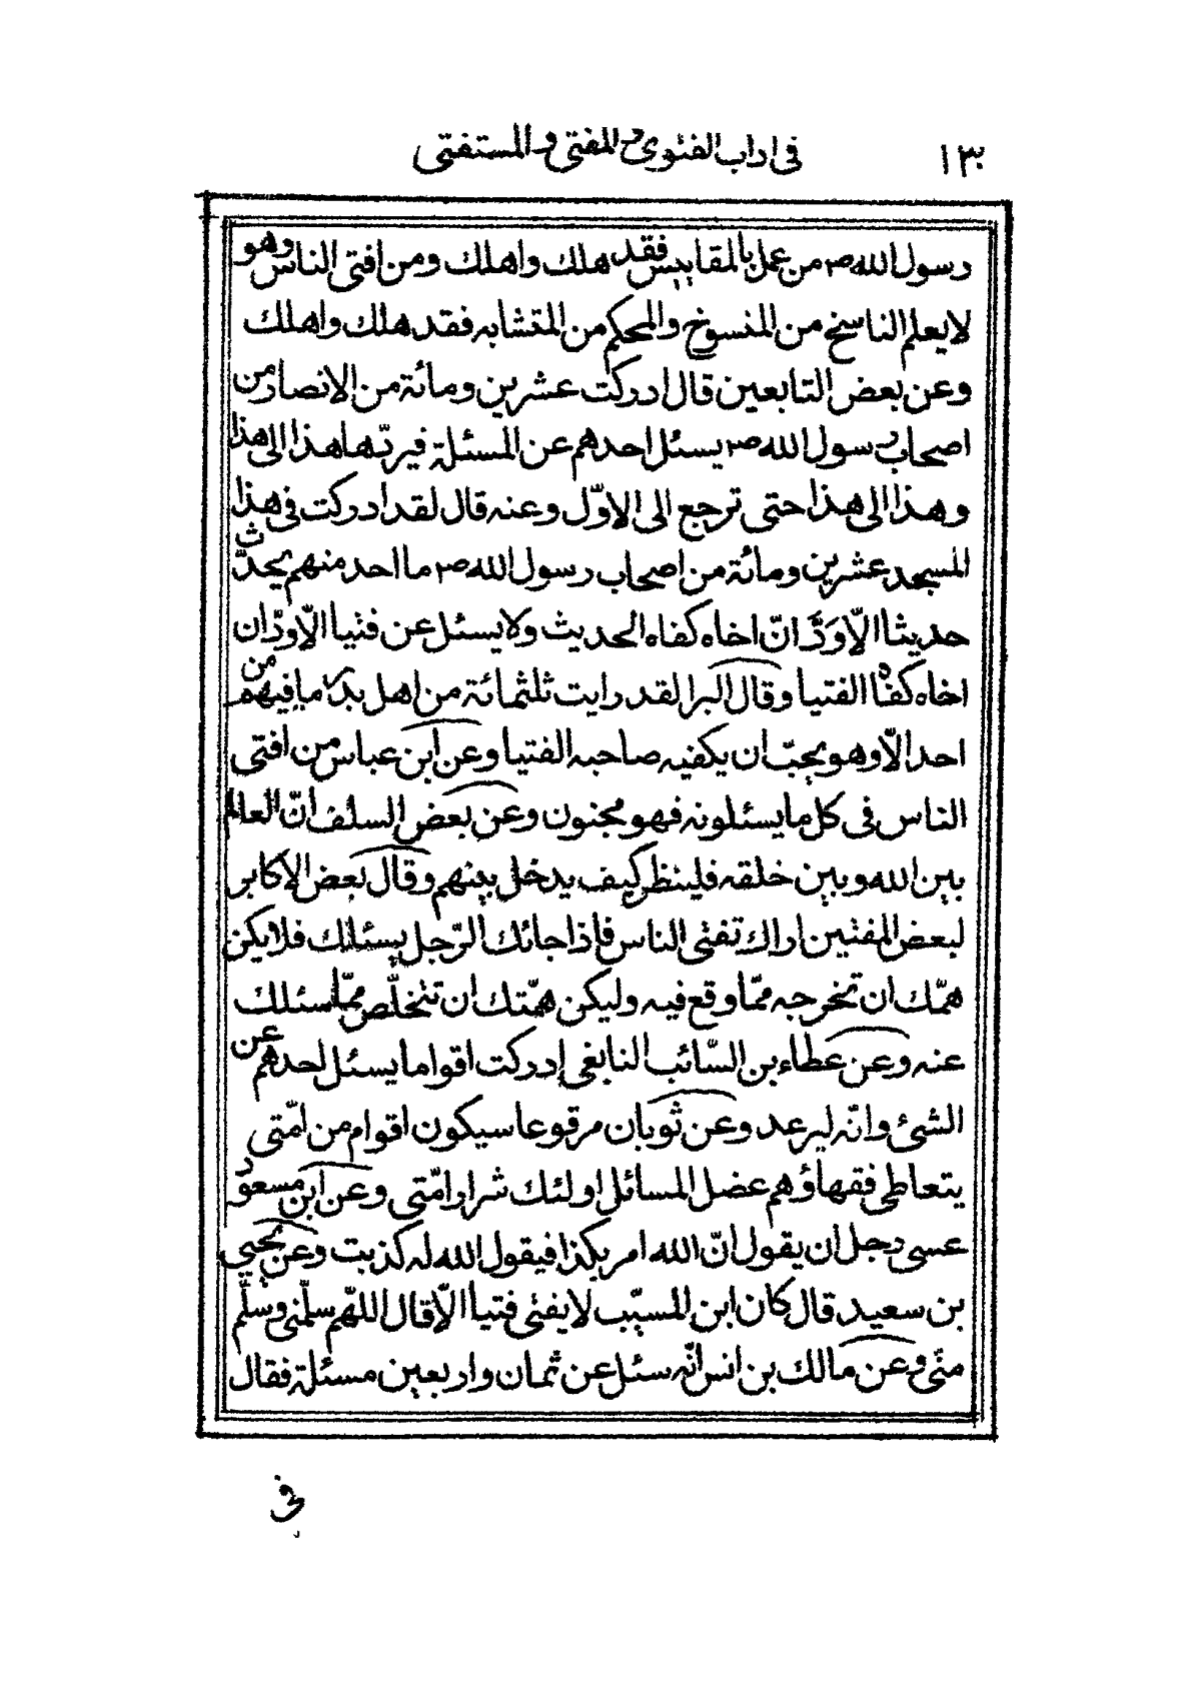 ١٣٠ في اداب الفتوى و المفتي و المستفتي
رسول الله ص من عمل بالمقاييس فقد هلك واهلك ومن افتى الناس وهو
لا يعلم الناسخ من المنسوخ والمحكم من المتشابه فقد هلك واهلك
وعن بعض التابعين قال ادركت عشرين ومائة من الانصار من
اصحاب رسول الله ص يسئل احدهم عن المسئلة فيردّها هذا الى هذا
وهذا الى هذا حتى ترجع الى الاوّل وعنه قال لقد ادركت في هذا
المسجد عشرين ومائة من اصحاب رسول الله ص ما احد منهم يحدّث
حديثا الّا وَدَّ انّ اخاه كفاه الحديث ولا يسئل عن فتيا الّا ودّ ان
اخاه كفاه الفتيا وقال البرا لقد رايت ثلثمائة من اهل بدر ما فيهم من
احد الّا وهو يحبّ ان يكفيه صاحبه الفتيا وعن ابن عباس من افتى
الناس في كل ما يسئلونه فهو مجنون وعن بعض السلف انّ العالم
بين الله وبين خلقه فلينظر كيف يدخل بينهم وقال بعض الاكابر
لبعض المفتين اراك تفتى الناس فإذا جائك الرّجل يسئلك فلا يكن
همّك ان تخرجه ممّا وقع فيه وليكن همّتك ان تتخلّص ممّا سئلك
عنه وعن عطاء بن السّائب التابعى إدركت اقواما يسئل احدهم عن
الشئ وانّه ليرعد وعن ثوبان مرفوعا سيكون اقوام من امّتى
يتعاطى فقهاؤهم عضل المسائل اولئك شرار امّتى وعن ابن مسعود
عسى رجل ان يقول انّ الله امر بكذا فيقول الله له كذبت وعن يحيى
بن سعيد قال كان ابن المسيّب لا يفتى فتيا الّا قال اللهّم سلّمنى وسلّم
منّى وعن مالك بن انس انّه سئل عن ثمان واربعين مسئلة فقال
فى